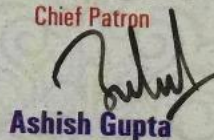 Chief Patron
Ashish Gupta